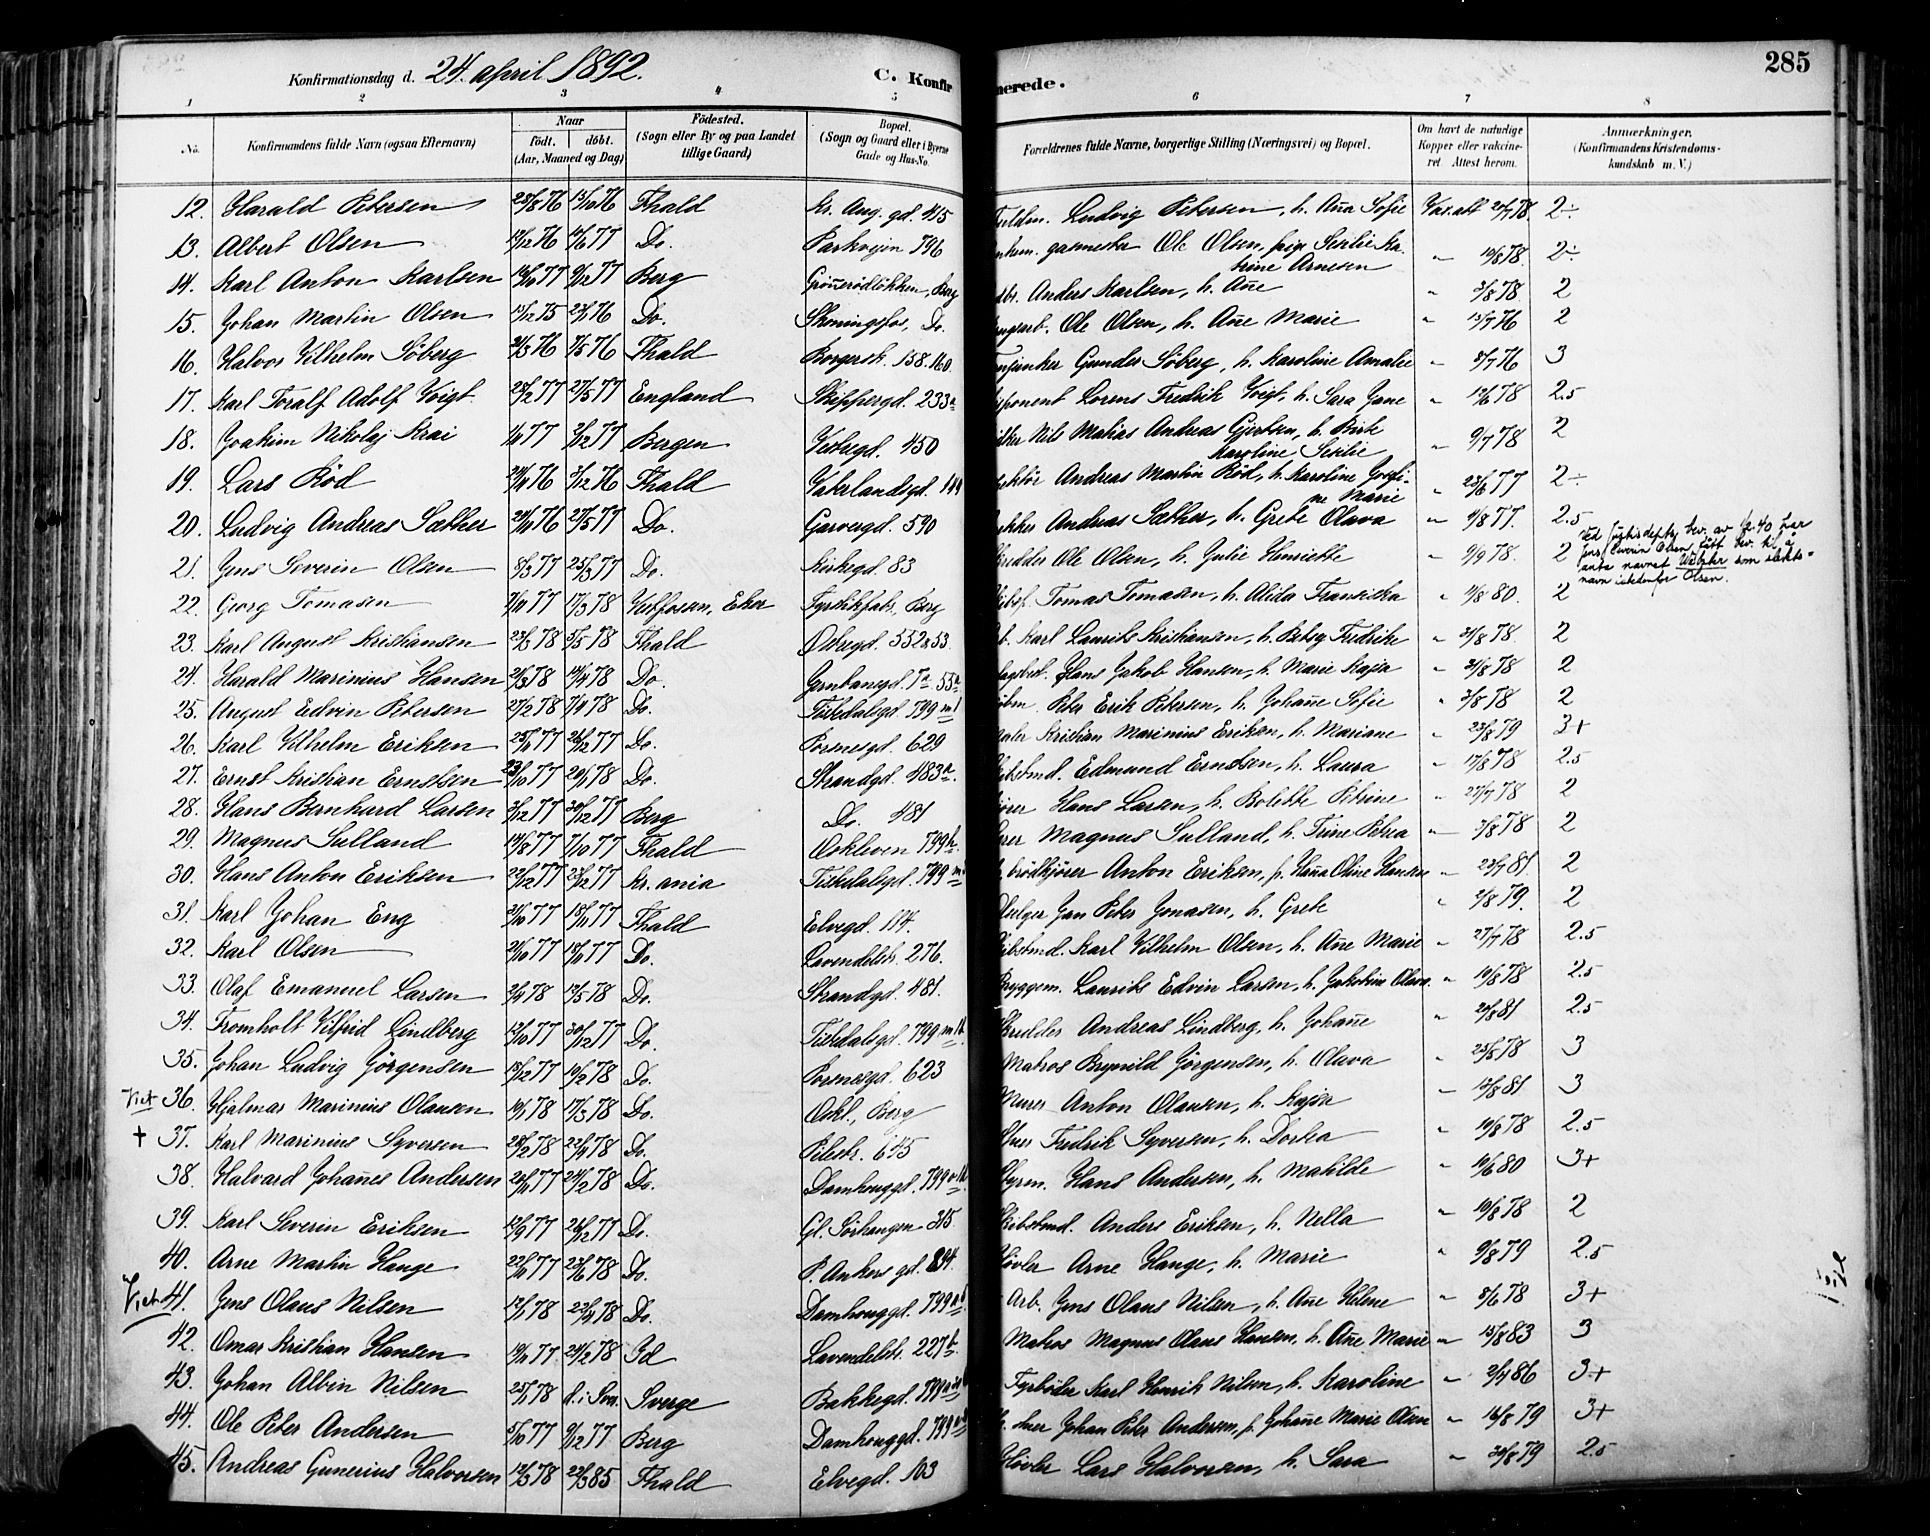 285
Konfirmationsdag d. 24. april 1892.
C. Konfir
merede.
1 2 3 4 5 6 7 8
No.
Konfirmandens fulde Navn (ogsaa Efternavn)
Naar
født. døbt.
(Aar, Maaned og Dag)
Fødested.
(Sogn eller By og paa Landet
tillige Gaard)
Bopæl.
(Sogn og Gaard eller i Byerne
Gade og Hus-No.
Forældrenes fulde Navne, borgerlige Stilling (Næringsvei) og Bopæl.
Om havt de naturlige
Kopper eller vakcine-
ret. Attest herom.
Anmærkninger.
(Konfirmandens Kristendoms-
kundskab m. V.)
12. Harald Petersen 28/8 76 15/10 76 Fhald Kr. Aug. gd. 415 Ludvig Petersen, h. Aña Sofie Vax.att 20/7 78 2÷
13. Albert Olsen 76 77 Do. Parkvejen 796 gasmester Ole Olsen, pige Sesilie Ka-
trine Arnesen " 10/8 78. 2÷
14. Karl Anton Karlsen 77 9/12 77 Berg Grönerödlökken, Berg Anders Karlsen, h. Añe " 3/8 78. 2
15. Johan Martin Olsen 75 76 Do. Skoningsfos, Do. Ole Olsen, h. Añe Marie " 15/7 76 2
16. Halvor Vilhelm Söberg 76 7/5 76 Fhald Borgersk. 158.160. Gunder Söberg, h. Karoline Amalie " 5/7 76 3
17. Karl Toralf Adolf Voigt 25/2 77 27/5 77 England Skippergd. 233a Lorens Fredrik Voigt, h. Sara Jane " 78 2.5
18. Joakim Nikolaj Krai 77 2/12 77 Bergen Vestergd. 450 Nils Matias Andreas Gjertsen, h. Birte
Karoline Sesilie " 9/7 78 2
19. Lars Röd 76 3/12 76 Fhald Vaterlandsgd. Andreas Martin Röd, h. Karoline Josefi-
ne Marie " 23/6 77 2÷
20. Ludvig Andreas Sæther 76 27/5 77 Do. Garvergd. 590 Andreas Sæther, h. Grete Olava " 4/8 77. 2.5
21. Jens Severin Olsen 8/3 77 25/3 77 Do. Kirkegd. 83 Ole Olsen, h. Julie Henriette " 9/9 78. 2
Ved Justisdepts bev. av har
Jens Severin Olsen fått bev. til å
anta navnet Walter som slekts-
navn istedenfor Olsen.
22. Georg Tomasen 77 17/3 78 Vestfossen, Eker Fyrstikfabr., Berg Tomas Tomasen, h. Alida Fransiska " 11/8 80. 2
23. Karl August Kristiansen 23/2 78 5/5 78 Fhald Ostregd. 552 & 53. Karl Laurits Kristiansen, h. Betsy Fredrike " 31/8 78. 2
24. Harald Marinius Hansen 78 14/4 78 Do. Jernbanegd. Hans Jakob Hansen, h. Marie Kajsa " 31/8 78 2
25. August Edvin Petersen 27/2 78 7/4 78 Do. Tistedalsgd. 799 Peter Erik Petersen, h. Johañe Sofie " 3/8 78 2
26. Karl Vilhelm Eriksen 77 26/12 77 Do. Porsnesgd. 629 Kristian Marinius Eriksen, h. Mariane " 23/8 79 3+
27. Ernst Kristian Ernstsen 23/10 77 20/1 78 Do. Strandgd. 483a. Edmund Ernstsen, h. Laura " 17/8 78 2.5
28. Hans Bernhard Larsen 77 30/12 77 Berg Do. 481 Hans Larsen, h. Bolette Petrine " 27/7 78 2
29. Magnus Sulland 14/8 77 7/10 77 Fhald Oskleven 799 Magnus Sulland, h. Trine Petrea " 3/8 78 2
30. Hans Anton Eriksen 77 77 Kr.ania Tistedalsgd. 799 brödkjörer Anton Eriksen, p. Haña Oline Hansen " 23/7 81. 2
31. Karl Johan Eng 77 18/11 77 Fhald Elvegd. 114. Jan Peter Jonasen, h. Grete " 2/8 79. 2
32. Karl Olsen 77 77 Do. Lavendelstr. 276. Karl Vilhelm Olsen, h. Añe Marie " 27/7 78 2.5
33. Olaf Emanuel Larsen 2/4 78 12/5 78 Do. Strandgd. 481. Bryggem. Laurits Edvin Larsen, h. Jakobine Olava. " 10/8 78 2.5
34. Tromholt Vilfrid Lindberg 12/10 77 30/12 77 Do. Tistedalsgd. 799 Skredder Andreas Lindberg, h. Johañe " 20/8 81 2.5
35. Johan Ludvig Jörgensen 15/12 77 10/2 78 Do. Porsnesgd. 623 Matros Brynild Jörgensen, h. Olava " 25/8 78 3
Viet 36. Hjalmar Marinius Olausen 78 17/3 78 Do. Oskl., Berg Murer Anton Olausen, h. Kajsa " 13/8 81 3
+ 37. Karl Marinius Syversen 28/2 78 22/4 78 Do. Pilestr. 645 Fredrik Syversen, h. Dortea " 10/8 78 2.5
38. Halvard Johañes Andersen 77 24/2 78 Do. Damhauggd. 799 Styrm. Hans Andersen, h. Matilde " 10/6 80 3+
39. Karl Severin Eriksen 12/9 77 26/12 77 Do. Gl. Sörhaugen 315 Anders Eriksen, h. Nella " 10/8 78 2
40. Arne Martin Hauge 77 78 Do. P. Ankers gd. 894. Hövler Arne Hauge, h. Marie " 9/8 79 2.5
Viet 41. Jens Olaus Nilsen 12/1 78 22/4 78 Do. Damhauggd. 799 Arb. Jens Olaus Nilsen, h. Añe Helene " 8/6 78 3+
42. Omar Kristian Hansen 77 24/2 78 Id Lavendelstr. 227b. Matros Magnus Olaus Hansen, h. Añe Marie " 15/8 83 3
43. Johan Albin Nilsen 25/1 78 Sverge Bakkegd. 799 Fyrböder Karl Henrik Nilsen, h. Karoline " 2/4 86 3+
44. Ole Peter Andersen 5/10 77 9/12 77 Berg Damhauggd. 799 Johan Peter Andersen, p. Johañe Marie Olsen " 16/8 79 3+
45. Andreas Gunerius Halvorsen 12/3 78 22/3 85 Fhald Elvegd. 103 Hövler Lars Halvorsen, h. Sara " 30/8 79 2.5